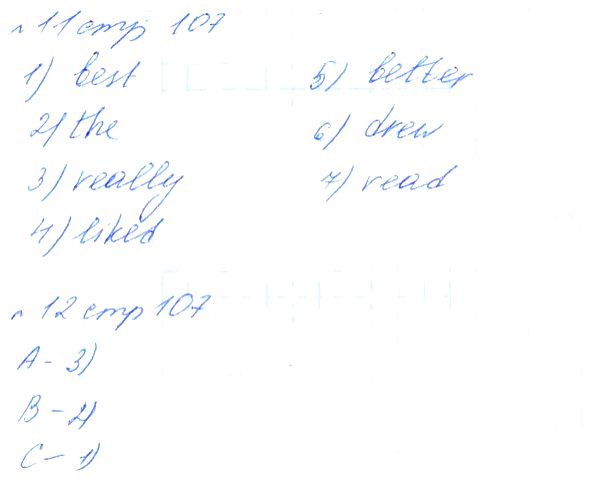 n 11 стр 107
1) best
2) the
3) really
4) liked
5) better
6) drew
7) read
n 12 стр 107
A - 3)
B - 2)
C - 1)